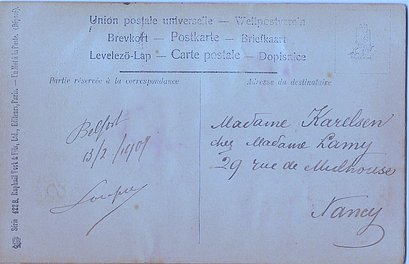 Union postale universelle — Weltpostverein
Brevkort — Postkarte — Briefkaart
Levelező-Lap — Carte postale — Dopisnice
Partie réservée à la correspondance
Adresse du destinataire
Belfort
13/2/1905
Madame Karelsen
chez Madame Lamy
29 rue de Mulhouse
Nancy
Série 622 B. Raphael Tuck & Fils, Ltd., Editeurs, Paris.